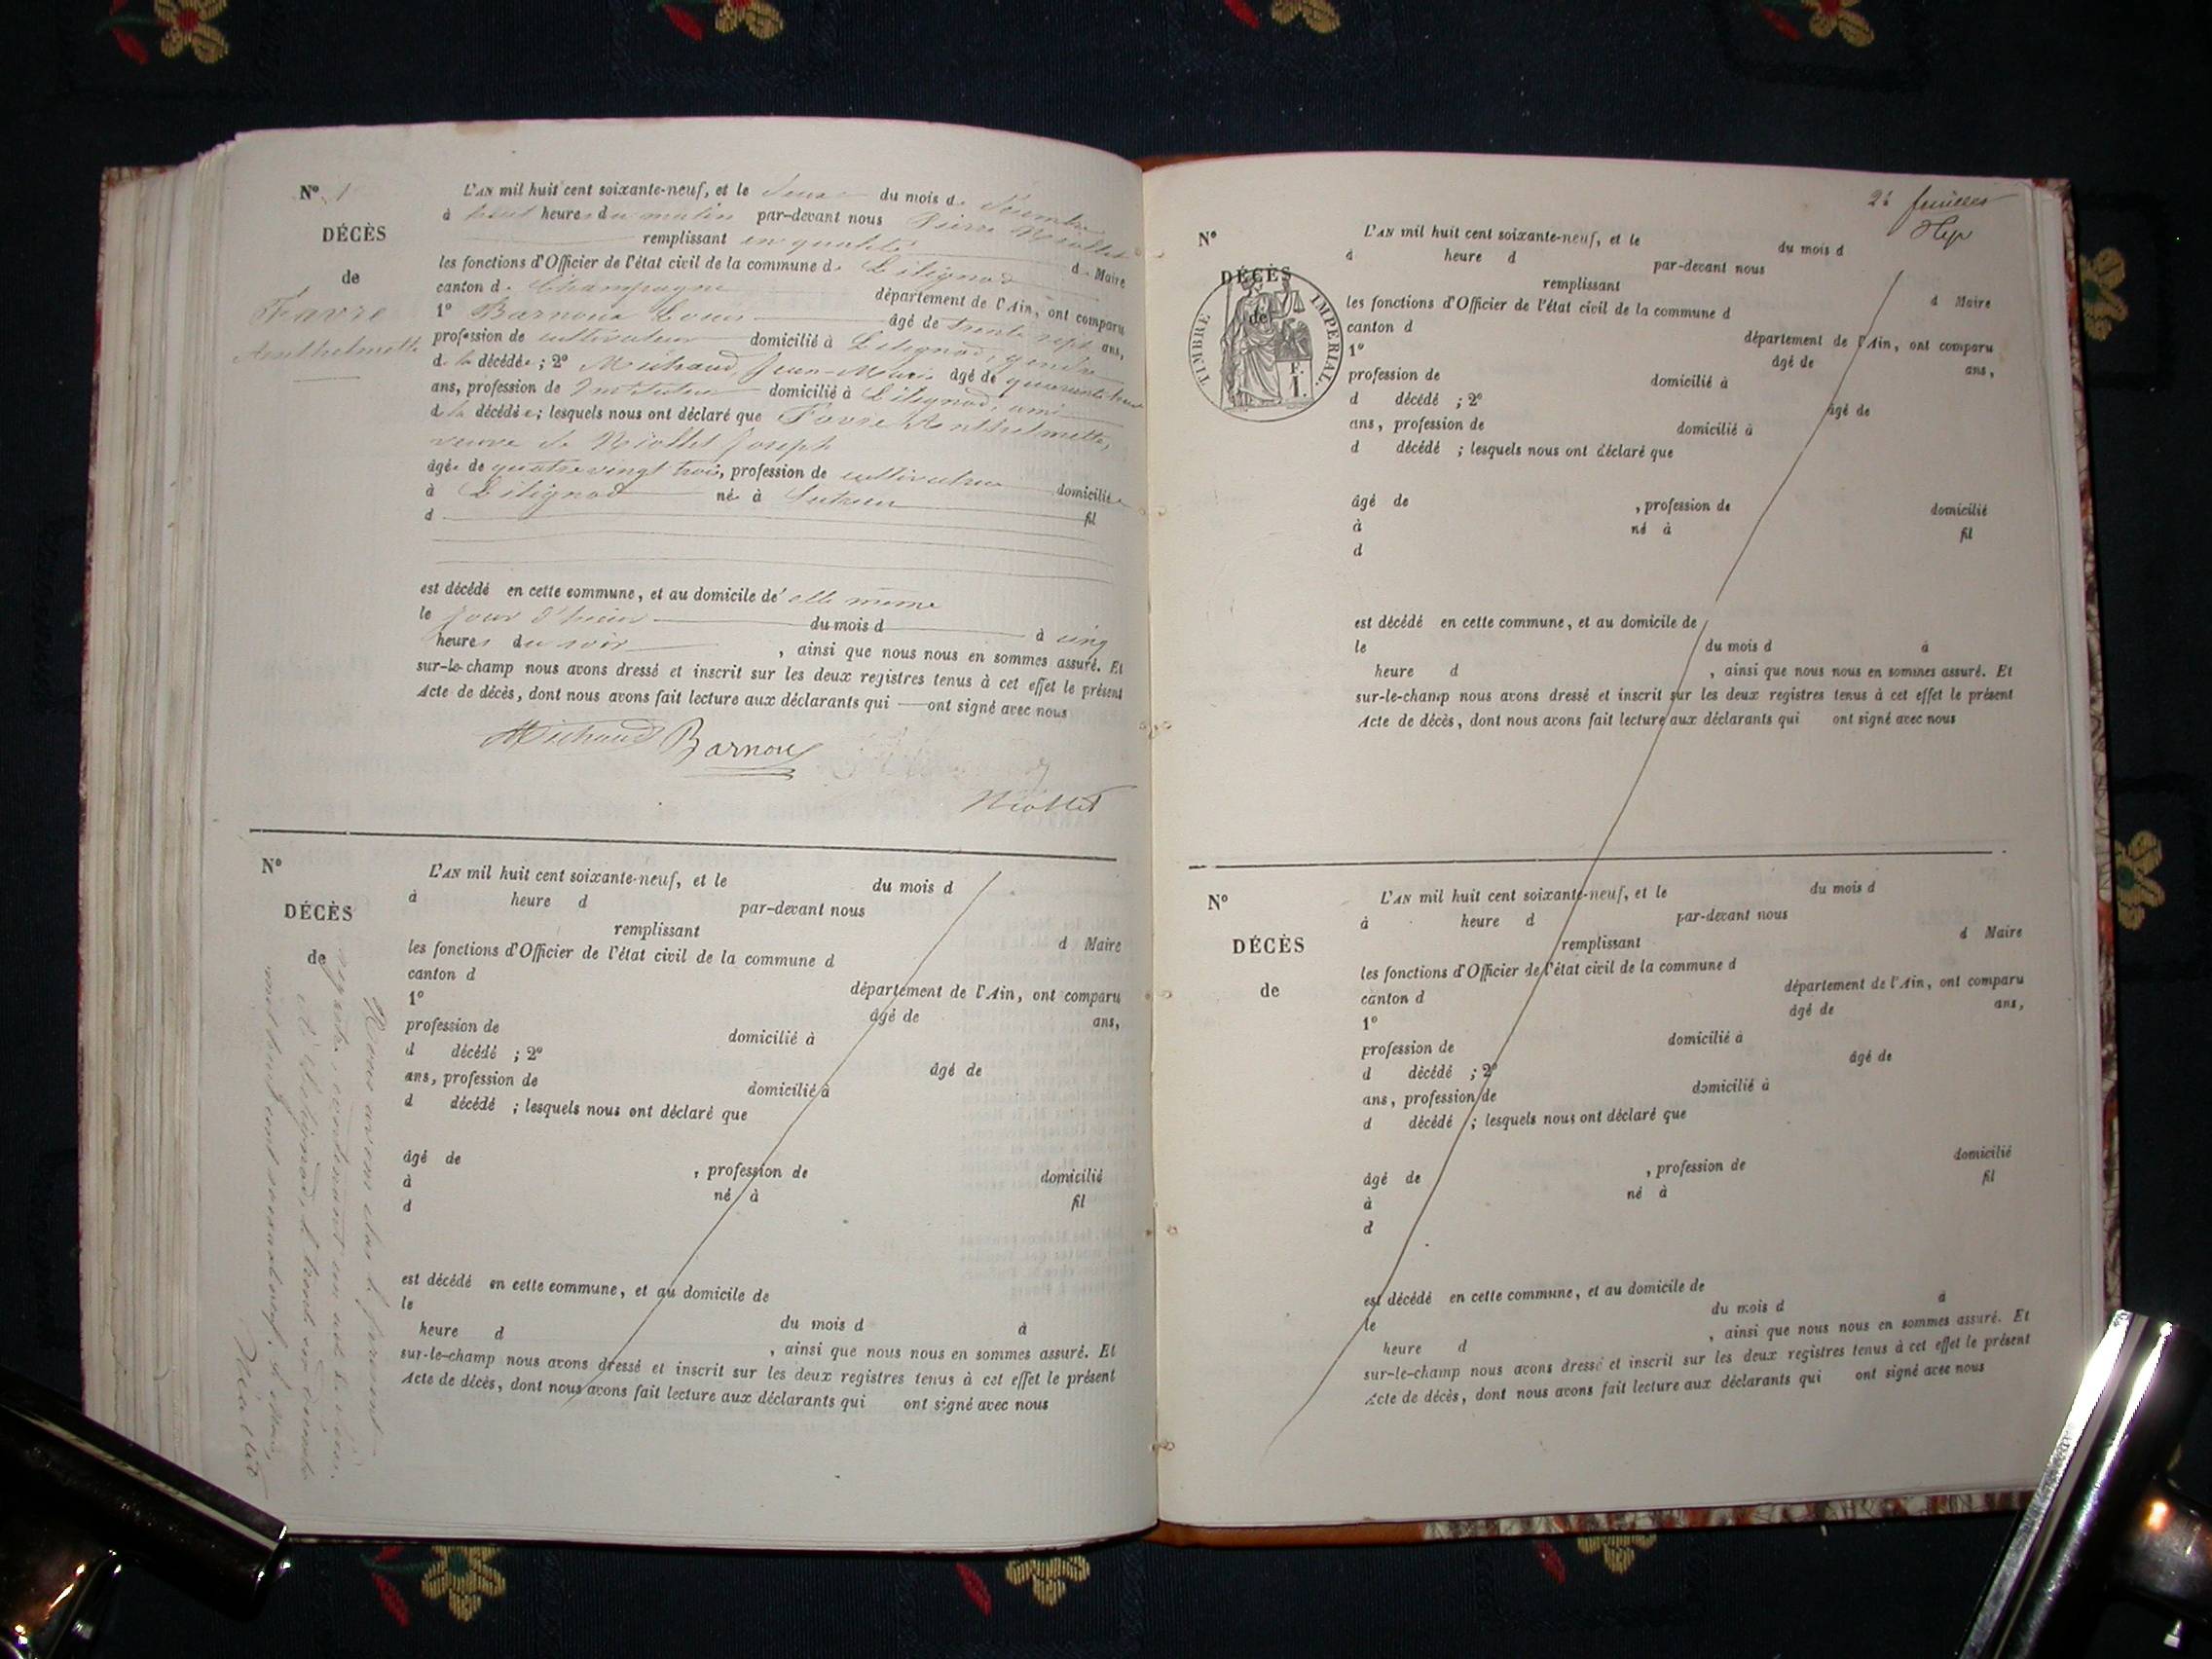 N° 1
DÉCÈS
de
Favre
Anthelmette
L'AN mil huit cent soixante-neuf, et le douze du mois de Décembre
à huit heures du matin par-devant nous Pierre Niollet
remplissant en qualité de Maire
les fonctions d'Officier de l'état civil de la commune de Lilignod
canton de Champagne département de l'Ain, ont comparu
1° Barnoux Louis âgé de trente sept ans,
profession de cultivateur domicilié à Lilignod, gendre
de la décédée ; 2° Michaud, Jean-Marie âgé de
ans, profession de Instituteur domicilié à Lilignod, ami
de la décédée ; lesquels nous ont déclaré que Favre Anthelmette,
veuve de Niollet Joseph
âgée de quatrevingt trois, profession de cultivatrice domiciliée
à Lilignod née à Sutrieu
d fil
est décédé en cette commune, et au domicile de elle même
le jour d'hier du mois d à cinq
heures du soir , ainsi que nous nous en sommes assuré. Et
sur-le-champ nous avons dressé et inscrit sur les deux registres tenus à cet effet le présent
Acte de décès, dont nous avons fait lecture aux déclarants qui ont signé avec nous
Michaud Barnoux
Niollet
N°
DÉCÈS
de
L'AN mil huit cent soixante-neuf, et le du mois d
à heure d par-devant nous
remplissant d Maire
les fonctions d'Officier de l'état civil de la commune d
canton d département de l'Ain, ont comparu
1° âgé de ans,
profession de domicilié à
d décédé ; 2° âgé de
ans, profession de domicilié à
d décédé ; lesquels nous ont déclaré que
âgé de , profession de domicilié
à né à
d fil
est décédé en cette commune, et au domicile de
le du mois d à
heure d , ainsi que nous nous en sommes assuré. Et
sur-le-champ nous avons dressé et inscrit sur les deux registres tenus à cet effet le présent
Acte de décès, dont nous avons fait lecture aux déclarants qui ont signé avec nous
Nous avons clos le présent
registre, contenant un acte de décès,
à Lilignod, le trente un décembre
mil huit cent soixante neuf.
Niollet
2e feuillet
N°
DÉCÈS
de
TIMBRE IMPERIAL.
L'AN mil huit cent soixante-neuf, et le du mois d
à heure d par-devant nous
remplissant d Maire
les fonctions d'Officier de l'état civil de la commune d
canton d département de l'Ain, ont comparu
1° âgé de ans,
profession de domicilié à
d décédé ; 2° âgé de
ans, profession de domicilié à
d décédé ; lesquels nous ont déclaré que
âgé de , profession de domicilié
à né à fil
d
est décédé en cette commune, et au domicile de
le du mois d à
heure d , ainsi que nous nous en sommes assuré. Et
sur-le-champ nous avons dressé et inscrit sur les deux registres tenus à cet effet le présent
Acte de décès, dont nous avons fait lecture aux déclarants qui ont signé avec nous
N°
DÉCÈS
de
L'AN mil huit cent soixante-neuf, et le du mois d
à heure d par-devant nous
remplissant d Maire
les fonctions d'Officier de l'état civil de la commune d
canton d département de l'Ain, ont comparu
1° âgé de ans,
profession de domicilié à
d décédé ; 2° âgé de
ans, profession de domicilié à
d décédé ; lesquels nous ont déclaré que
âgé de , profession de domicilié
à né à fil
d
est décédé en cette commune, et au domicile de
le du mois d à
heure d , ainsi que nous nous en sommes assuré. Et
sur-le-champ nous avons dressé et inscrit sur les deux registres tenus à cet effet le présent
Acte de décès, dont nous avons fait lecture aux déclarants qui ont signé avec nous